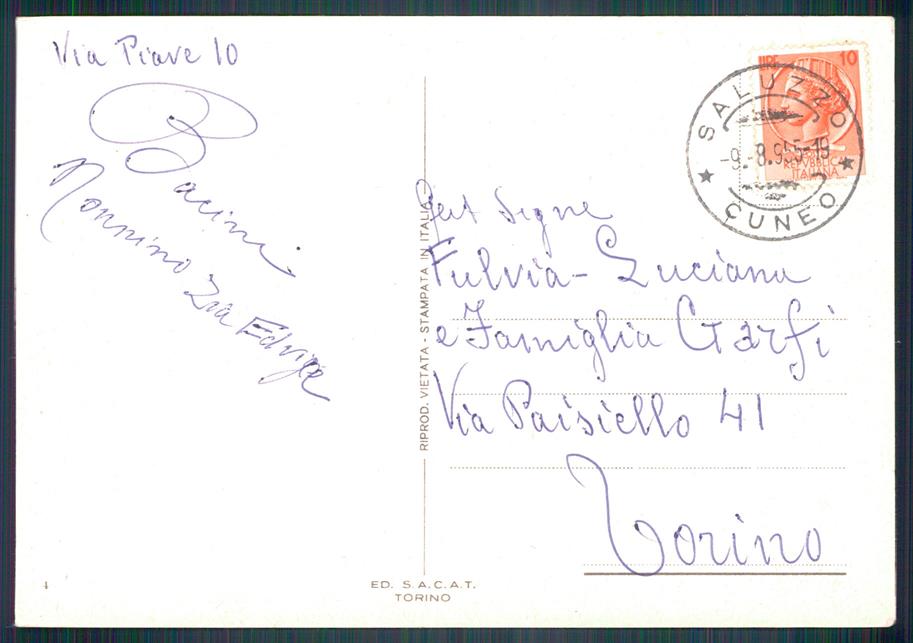 Via Piave 10
Bacini
Nonnino Zia Edvige
LIRE 10
REPVBBLICA
ITALIANA
SALUZZO
-9.-8.955-19
CUNEO
RIPROD. VIETATA - STAMPATA IN ITALIA
Gent Signe
Fulvia - Luciana
e Famiglia Garfi
Via Paisiello 41
Torino
4
ED. S.A.C.A.T.
TORINO